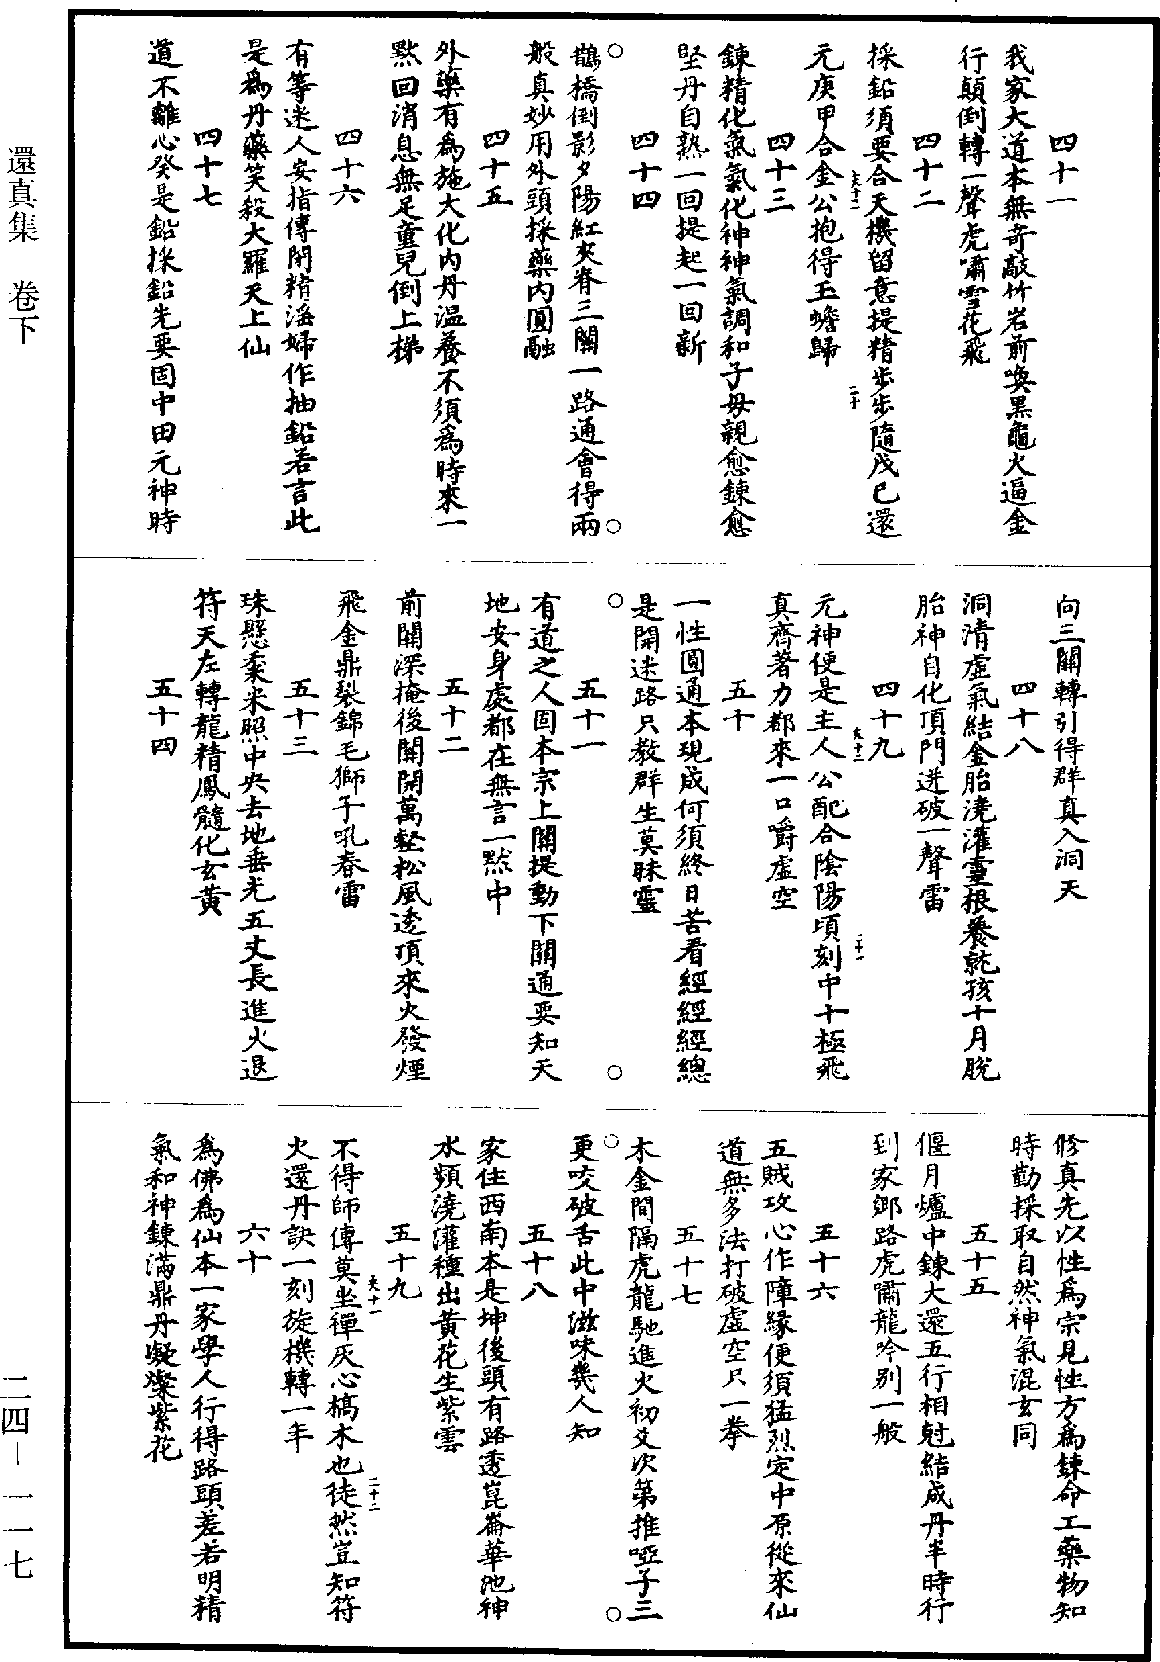 還真集　卷下
四十一
我家大道本無奇敲竹岩前喚黑龜火逼金
行顛倒轉一聲虎嘯雪花飛
四十二
採鉛須要合天機留意提精步步隨戊已還
元庚甲合金公抱得玉蟾歸
四十三
鍊精化氣氣化神神氣調和子母親愈鍊愈
堅丹自熟一回提起一回新
四十四
鵲橋倒影夕陽紅夾脊三關一路通會得兩
般真妙用外頭採藥內圓融
四十五
外藥有為施大化內丹溫養不須為時來一
㸃回消息無足童兒倒上梯
四十六
有等迷人妄指傳閉精滛婦作抽鉛若言此
是為丹藥笑殺大羅天上仙
四十七
道不離心癸是鉛採鉛先要固中田元神時
向三關轉引得群真入洞天
四十八
洞清虛氣結金胎澆灌靈根養就孩十月脫
胎神自化頂門迸破一聲雷
四十九
元神便是主人公配合陰陽頃刻中十極飛
真齊著力都來一口嚼虛空
五十
一性圓通本現成何須終日苦看經經經總
是開迷路只教群生莫昧靈
五十一
有道之人固本宗上關提動下關通要知天
地安身處都在無言一㸃中
五十二
前關深掩後關開萬壑松風透頂來火發煙
飛金鼎裂錦毛獅子吼春雷
五十三
珠懸黍米照中央去地垂光五丈長進火退
符天左轉龍精鳳髓化玄黃
五十四
修真先以性為宗見性方為鍊命工藥物知
時勤採取自然神氣混玄同
五十五
偃月爐中鍊大還五行相尅結成丹半時行
到家鄉路虎嘯龍吟別一般
五十六
五賊攻心作障緣便須猛烈定中原從來仙
道無多法打破虛空只一拳
五十七
木金間隔虎龍馳進火初爻次第推啞子三
更咬破舌此中滋味幾人知
五十八
家住西南本是坤後頭有路透崑崙華池神
水頻澆灌種出黃花生紫雲
五十九
不得師傳莫坐禪灰心槁木也徒然豈知符
火還丹訣一刻旋機轉一年
六十
為佛為仙本一家學人行得路頭差若明精
氣和神鍊滿鼎丹凝燦紫花
二四—一一七